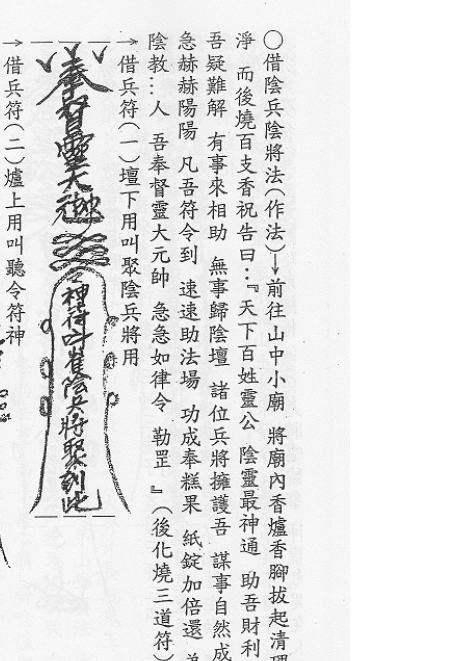 ○借陰兵陰將法(作法)→前往山中小廟 將廟內香爐香腳拔起清理
淨 而後燒百支香祝告曰：『天下百姓靈公 陰靈最神通 助吾財利
吾疑難解 有事來相助 無事歸陰壇 諸位兵將擁護吾 謀事自然成
急赫赫陽陽 凡吾符令到 速速助法場 功成奉糕果 紙錠加倍還
陰教…人 吾奉督靈大元帥 急急如律令 勒罡 』(後化燒三道符)
→借兵符(一)壇下用叫聚陰兵將用
奉督靈大元帥
令神符叫崔陰兵將聚到此
→借兵符(二)爐上用叫聽令符神